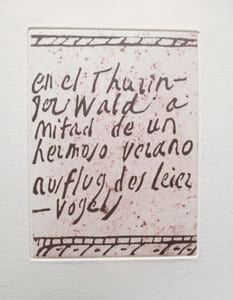 en el Thurin-
ger Wald a
mitad de un
hermoso verano
ausflug des leier
- vogels